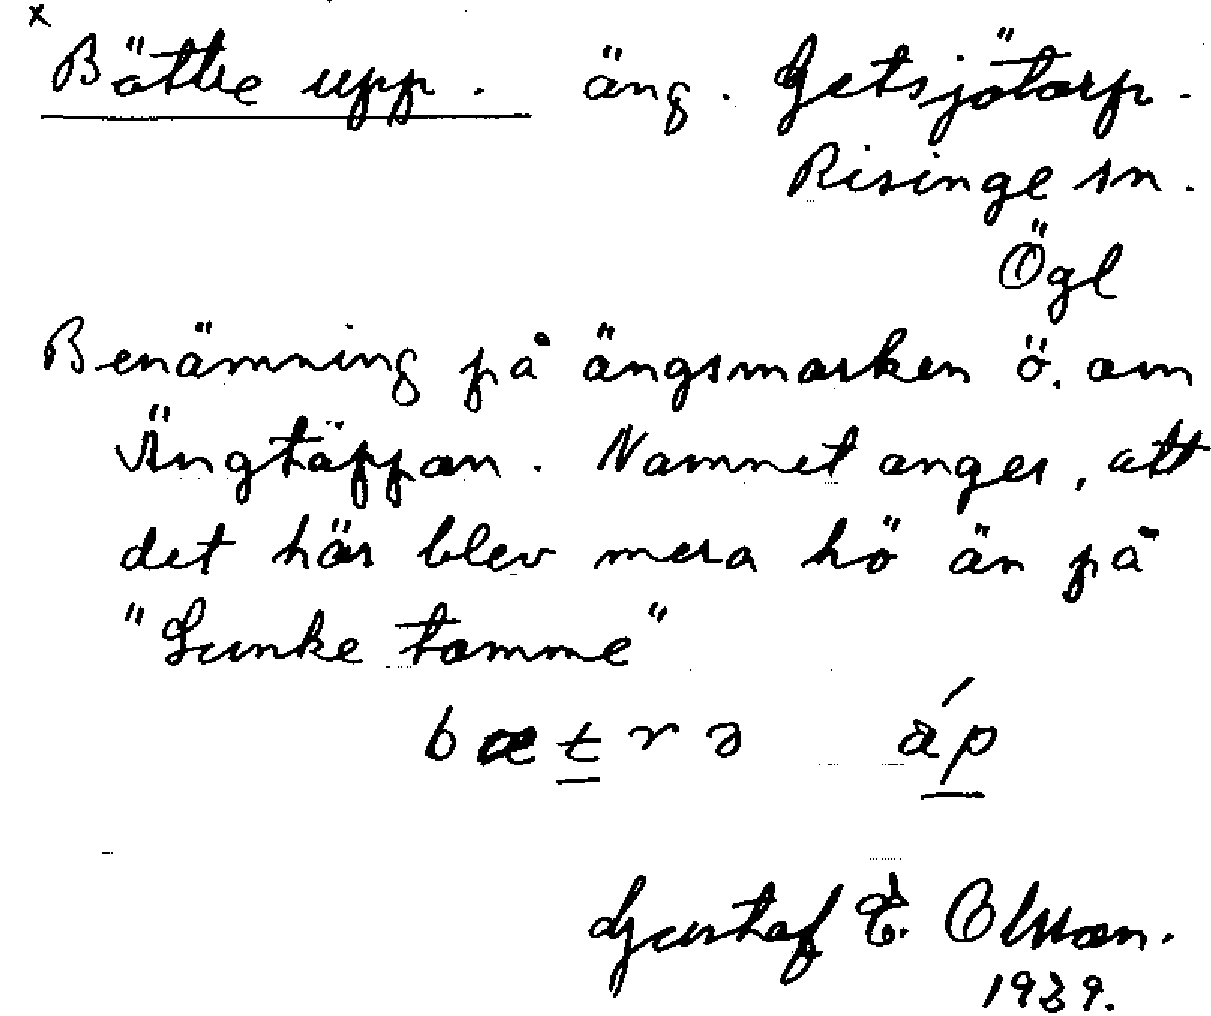 x
Bättre upp. äng. Getsjötorp.
Risinge sn.
Ögl
Benämning på ängsmarken ö. om
Ängtäppan. Namnet anger, att
det här blev mera hö än på
"Lunke tomme"
bætrə áp
Gustaf E. Olsson.
1939.